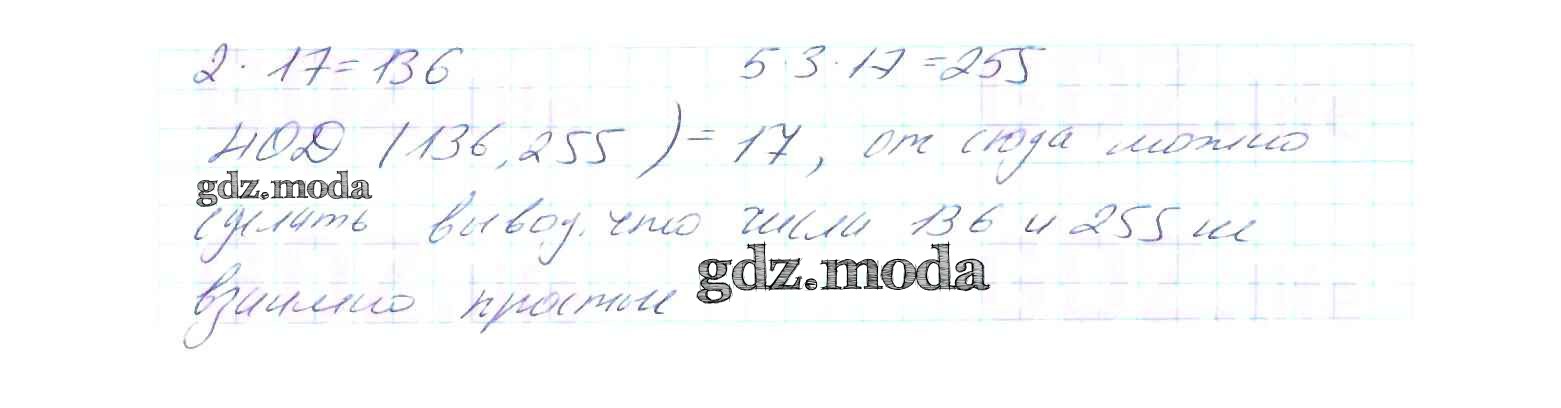 2 · 17 = 136 5·3·17 = 255
НОД (136, 255) = 17, от сюда можно
gdz.moda
сделать вывод. что числа 136 и 255 не
gdz.moda
взаимно простые